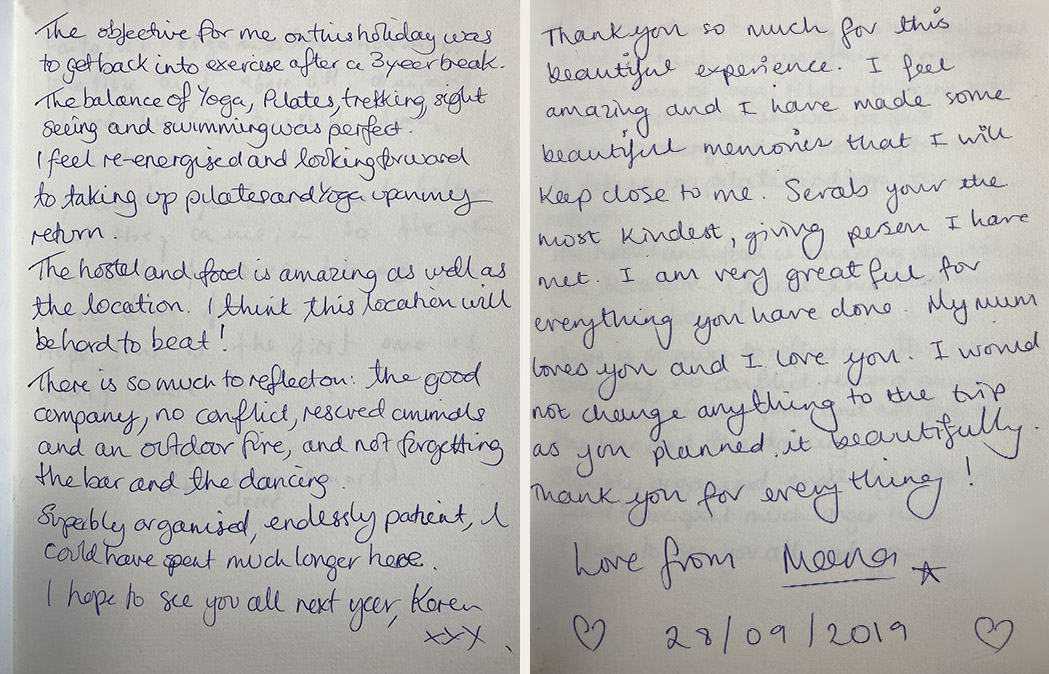 The objective for me on this holiday was
to get back into exercise after a 3 year break.
The balance of Yoga, Pilates, trekking sight
seeing and swimming was perfect.
I feel re-energised and looking forward
to taking up pilates and Yoga upon my
return.
The hostel and food is amazing as well as
the location. I think this location will
be hard to beat!
There is so much to reflect on: the good
company, no conflict, rescued animals
and an outdoor fire, and not forgetting
the bar and the dancing.
Superbly organised, endlessly patient, I
could have spent much longer here.
I hope to see you all next year, Karen
xxx.
Thank you so much for this
beautiful experience. I feel
amazing and I have made some
beautiful memories that I will
keep close to me. Serab your the
most kindest, giving person I have
met. I am very greatful for
everything you have done. My mum
loves you and I love you. I would
not change anything to the trip
as you planned it beautifully.
Thank you for everything!
Love from Meena
28/09/2019